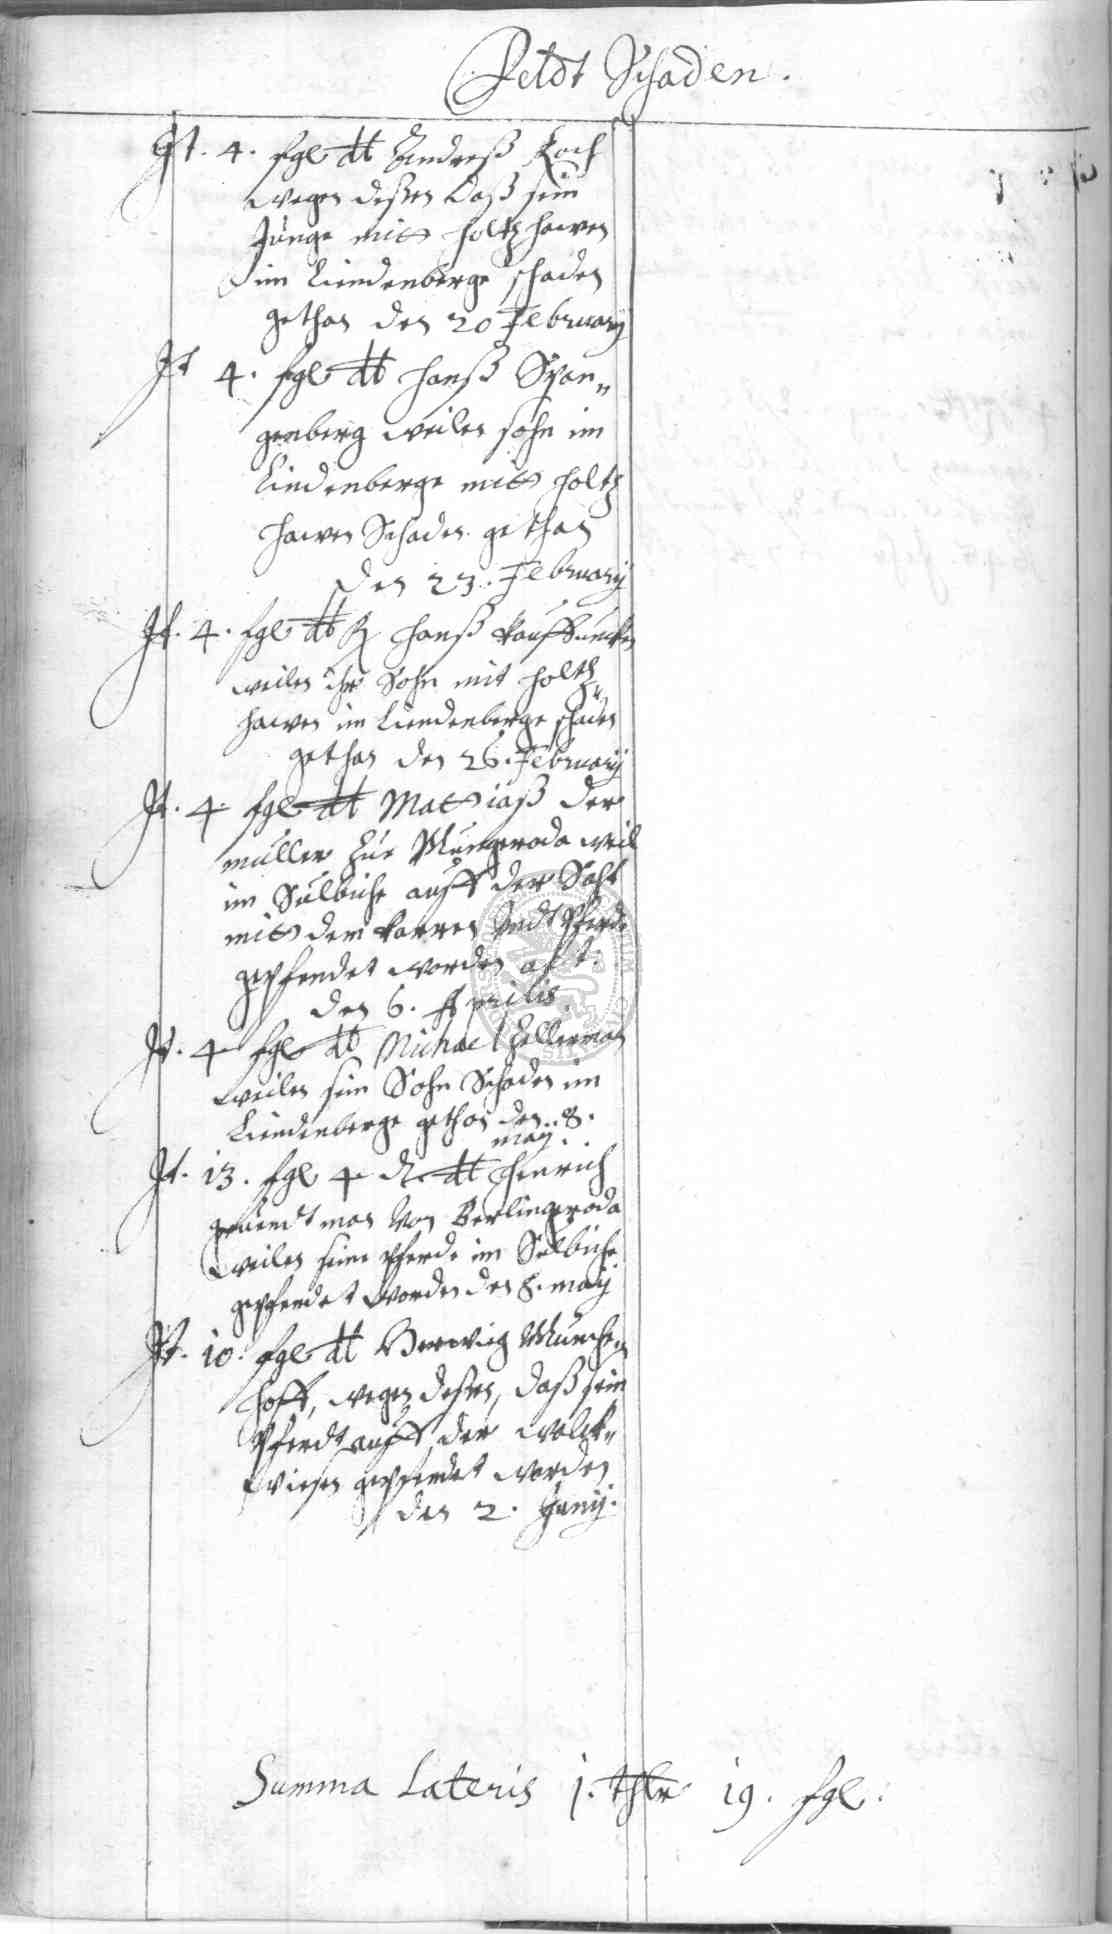 Feldt Schaden.
It. 4. sgl dt Andreß Koch
wegen deßen daß sein
Junge mitt holtz hawen
im Liendenberge schaden
gethan den 20 February
It 4. sgl dt Hanß Span„
genberg weilen sohn im
Liendenberge mitt holtz
hawen Schaden gethan
den 23. February
It. 4. sgl dt Hanß
weilen ihr Sohn mit holtz„
hawen im Liendenberge schaden
gethan den 26. February
It. 4 sgl dt Mattiaß der
muller zue Mungeroda weil
im Sulbiche auff der Saht
mitt dem karren vndt Pferde
gepfendet worden
den 6. Aprilis.
It. 4 sgl dt Michael Hellerman
weilen sein Sohn Schaden im
Liendenberge gethan den 8.
may.
It. 13. sgl 4 d dt Henrich
man von Berlingeroda
weilen seine pferde im Sulbiche
gepfendet worden den 8. maij
It. 10. sgl dt Herwieg Münche„
hoff, wegen deßen, daß sein
Pferdt auff der walck„
wiesen gepfendet worden
den 2. Junij.
Summa Lateris 1. thlr 19. sgl.